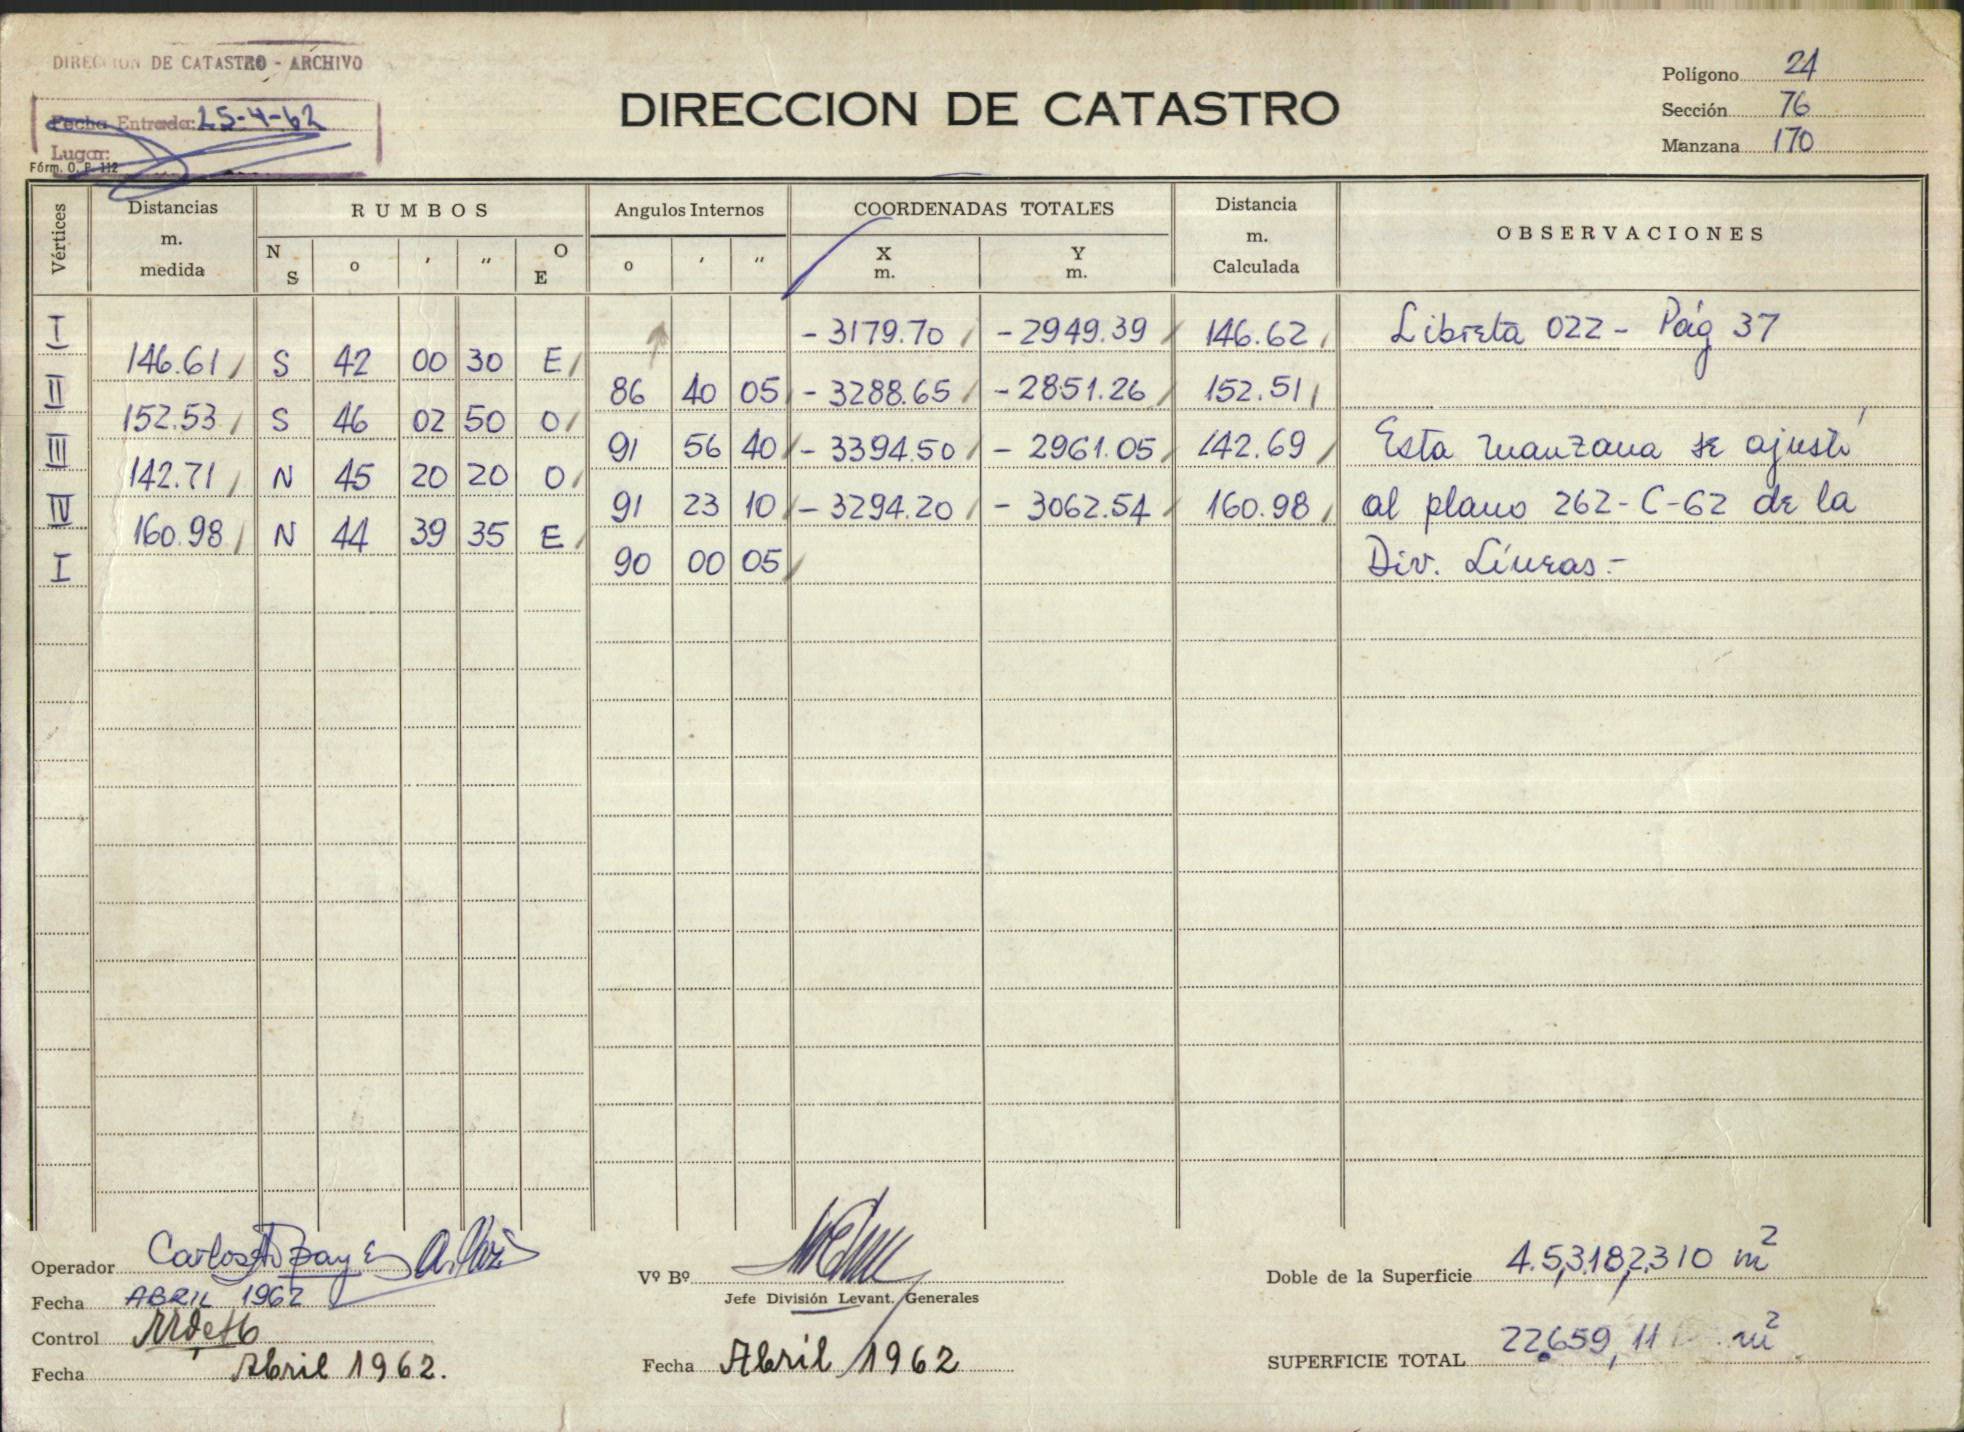 DIRECCION DE CATASTRO - ARCHIVO
Fecha Entrada: 25-4-62
Lugar:
Fórm. O. P. 112
DIRECCION DE CATASTRO
Polígono 24
Sección 76
Manzana 170
Vértices Distancias m. medida RUMBOS Angulos Internos COORDENADAS TOTALES Distancia m. Calculada OBSERVACIONES
N S o ' " O E o ' " X m. Y m.
I - 3179.70 - 2949.39 146.62 Libreta 022 - Pág 37
146.61 S 42 00 30 E
II 86 40 05 - 3288.65 - 2851.26 152.51
152.53 S 46 02 50 O
III 91 56 40 - 3394.50 - 2961.05 142.69 Esta manzana se ajustó
142.71 N 45 20 20 O
IV 91 23 10 - 3294.20 - 3062.54 160.98 al plano 262-C-62 de la
160.98 N 44 39 35 E
I 90 00 05 Div. Líneas.-
Operador Carlos
Fecha ABRIL 1962
Control
Fecha Abril 1962.
Vº Bº
Jefe División Levant. Generales
Fecha Abril 1962
Doble de la Superficie 4.5,3.18,2,310 m²
SUPERFICIE TOTAL 22.659,11 m²